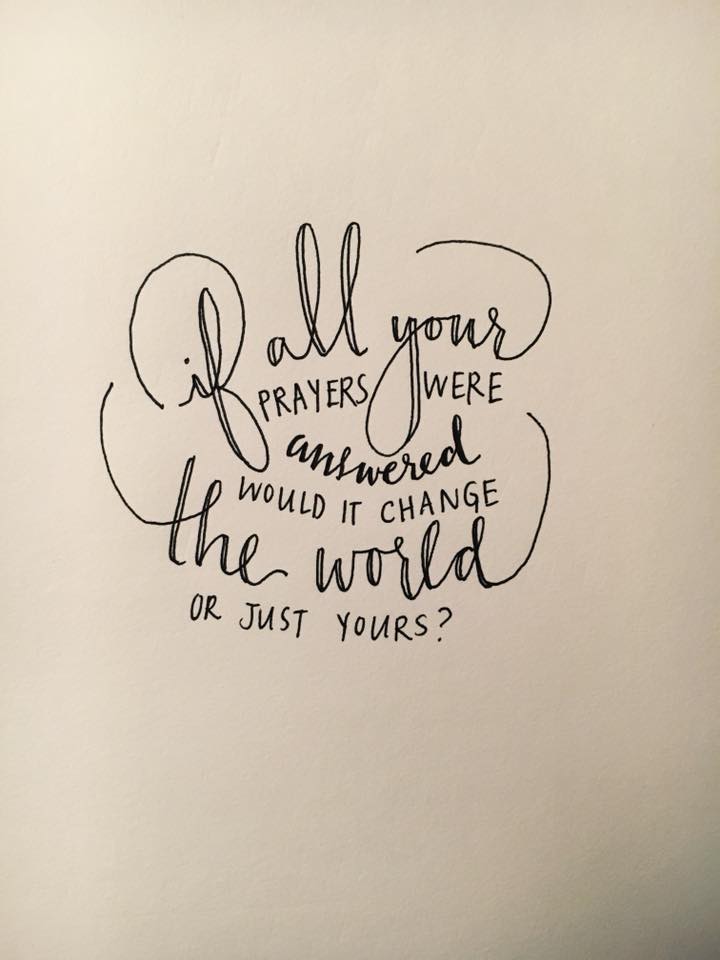 if all your
PRAYERS WERE
answered
WOULD IT CHANGE
the world
OR JUST YOURS?